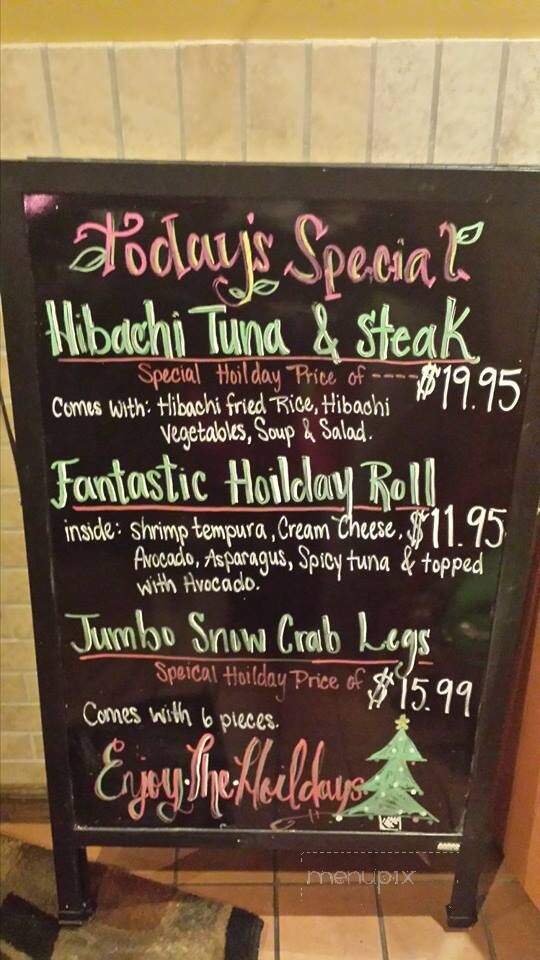 Today's Special
Hibachi Tuna & Steak
Special Hoilday Price of ---- $19.95
Comes with: Hibachi fried Rice, Hibachi
vegetables, Soup & Salad.
Fantastic Hoilday Roll
inside: Shrimp tempura, Cream Cheese, $11.95
Avocado, Asparagus, Spicy tuna & topped
with Avocado.
Jumbo Snow Crab Legs
Speical Hoilday Price of $15.99
Comes with 6 pieces.
Enjoy The Hoildays
menupix